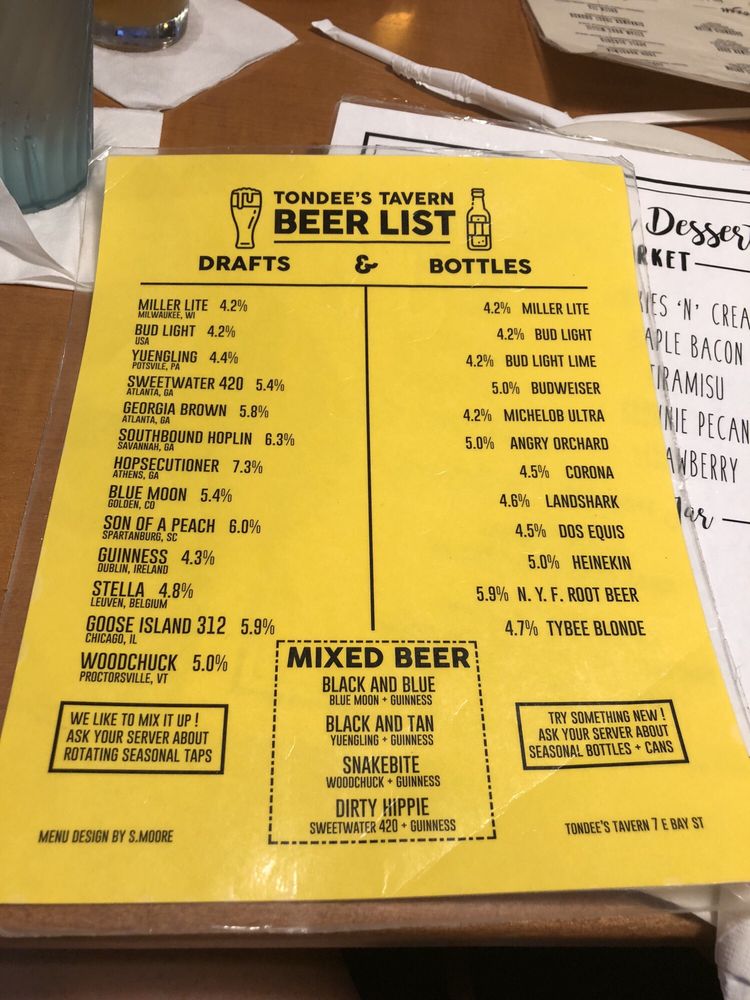 TONDEE'S TAVERN
BEER LIST
DRAFTS & BOTTLES
MILLER LITE 4.2%
MILWAUKEE, WI
BUD LIGHT 4.2%
USA
YUENGLING 4.4%
POTSVILE, PA
SWEETWATER 420 5.4%
ATLANTA, GA
GEORGIA BROWN 5.8%
ATLANTA, GA
SOUTHBOUND HOPLIN 6.3%
SAVANNAH, GA
HOPSECUTIONER 7.3%
ATHENS, GA
BLUE MOON 5.4%
GOLDEN, CO
SON OF A PEACH 6.0%
SPARTANBURG, SC
GUINNESS 4.3%
DUBLIN, IRELAND
STELLA 4.8%
LEUVEN, BELGIUM
GOOSE ISLAND 312 5.9%
CHICAGO, IL
WOODCHUCK 5.0%
PROCTORSVILLE, VT
4.2% MILLER LITE
4.2% BUD LIGHT
4.2% BUD LIGHT LIME
5.0% BUDWEISER
4.2% MICHELOB ULTRA
5.0% ANGRY ORCHARD
4.5% CORONA
4.6% LANDSHARK
4.5% DOS EQUIS
5.0% HEINEKIN
5.9% N. Y. F. ROOT BEER
4.7% TYBEE BLONDE
MIXED BEER
BLACK AND BLUE
BLUE MOON + GUINNESS
BLACK AND TAN
YUENGLING + GUINNESS
SNAKEBITE
WOODCHUCK + GUINNESS
DIRTY HIPPIE
SWEETWATER 420 + GUINNESS
WE LIKE TO MIX IT UP !
ASK YOUR SERVER ABOUT
ROTATING SEASONAL TAPS
TRY SOMETHING NEW !
ASK YOUR SERVER ABOUT
SEASONAL BOTTLES + CANS
MENU DESIGN BY S.MOORE
TONDEE'S TAVERN 7 E BAY ST
Dessert
RKET
IES 'N' CREA
APLE BACON
TIRAMISU
NIE PECAN
AWBERRY
Jar